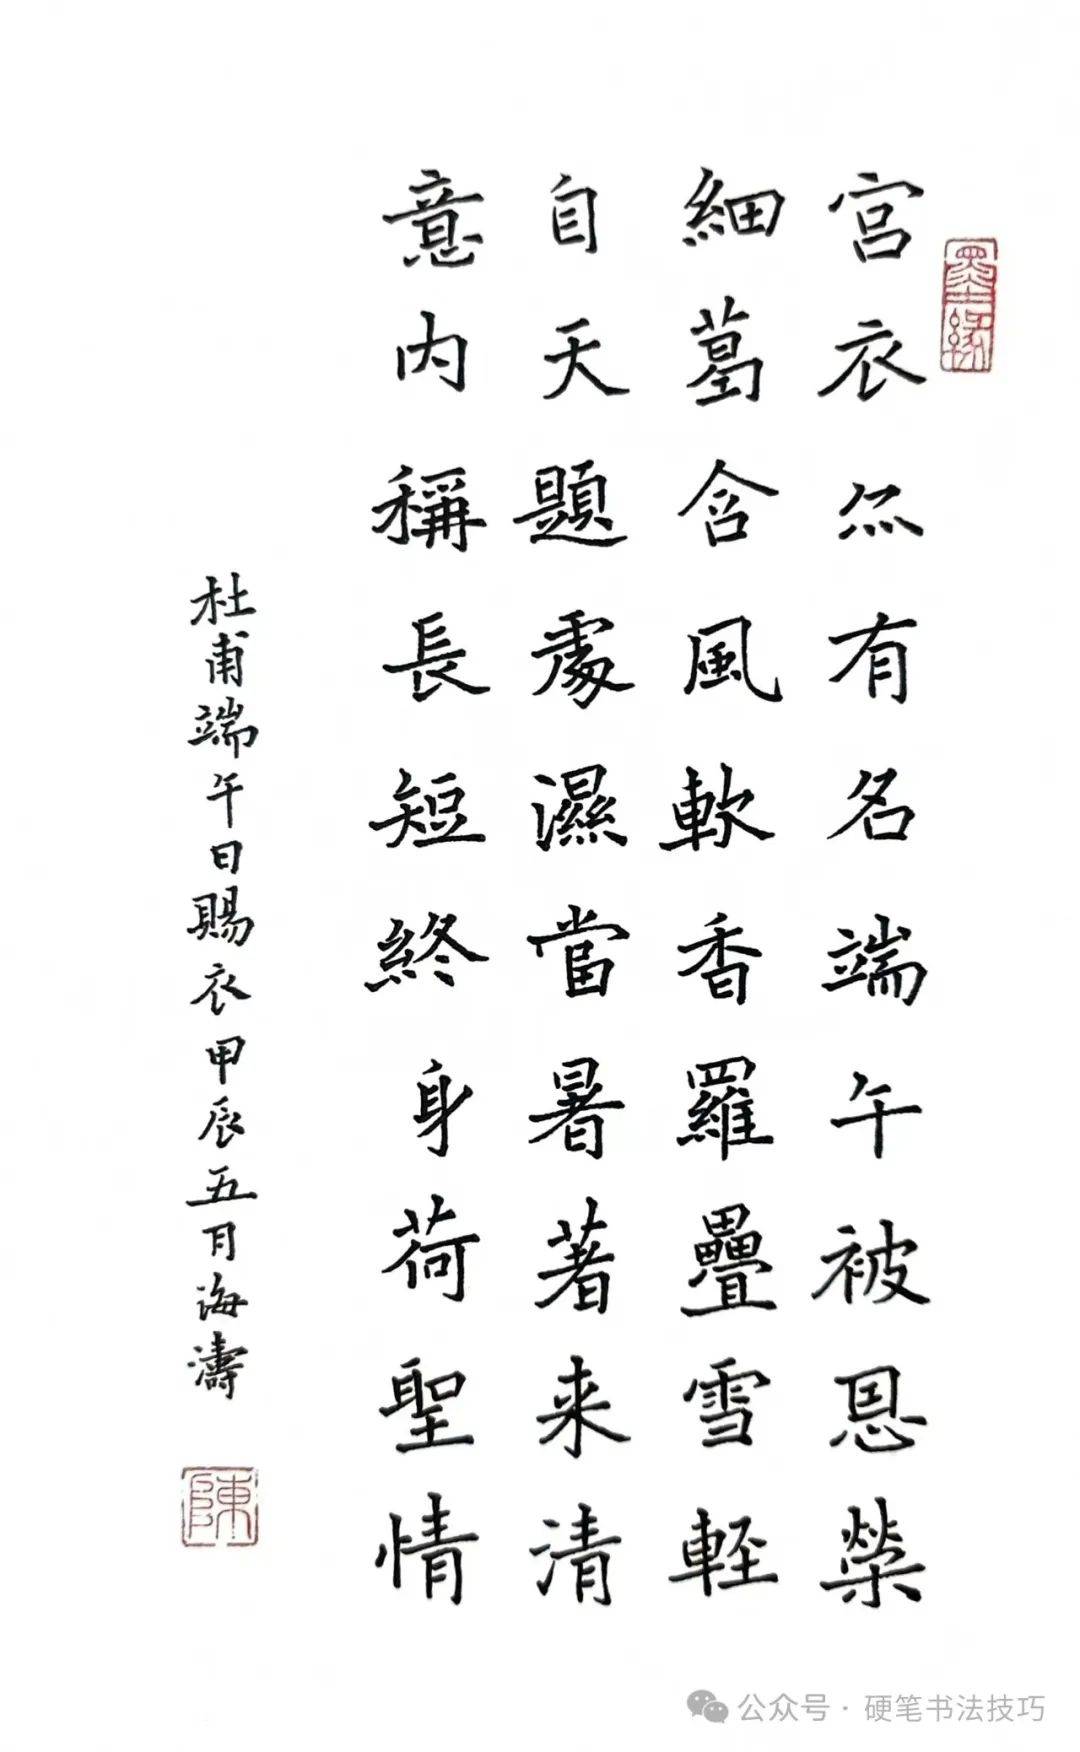 宫衣亦有名端午被恩榮
細葛含風軟香羅疊雪軽
自天題處濕當暑著来清
意内稱長短終身荷聖情
杜甫端午日賜衣甲辰五月海濤
墨缘
陳
公众号·硬笔书法技巧